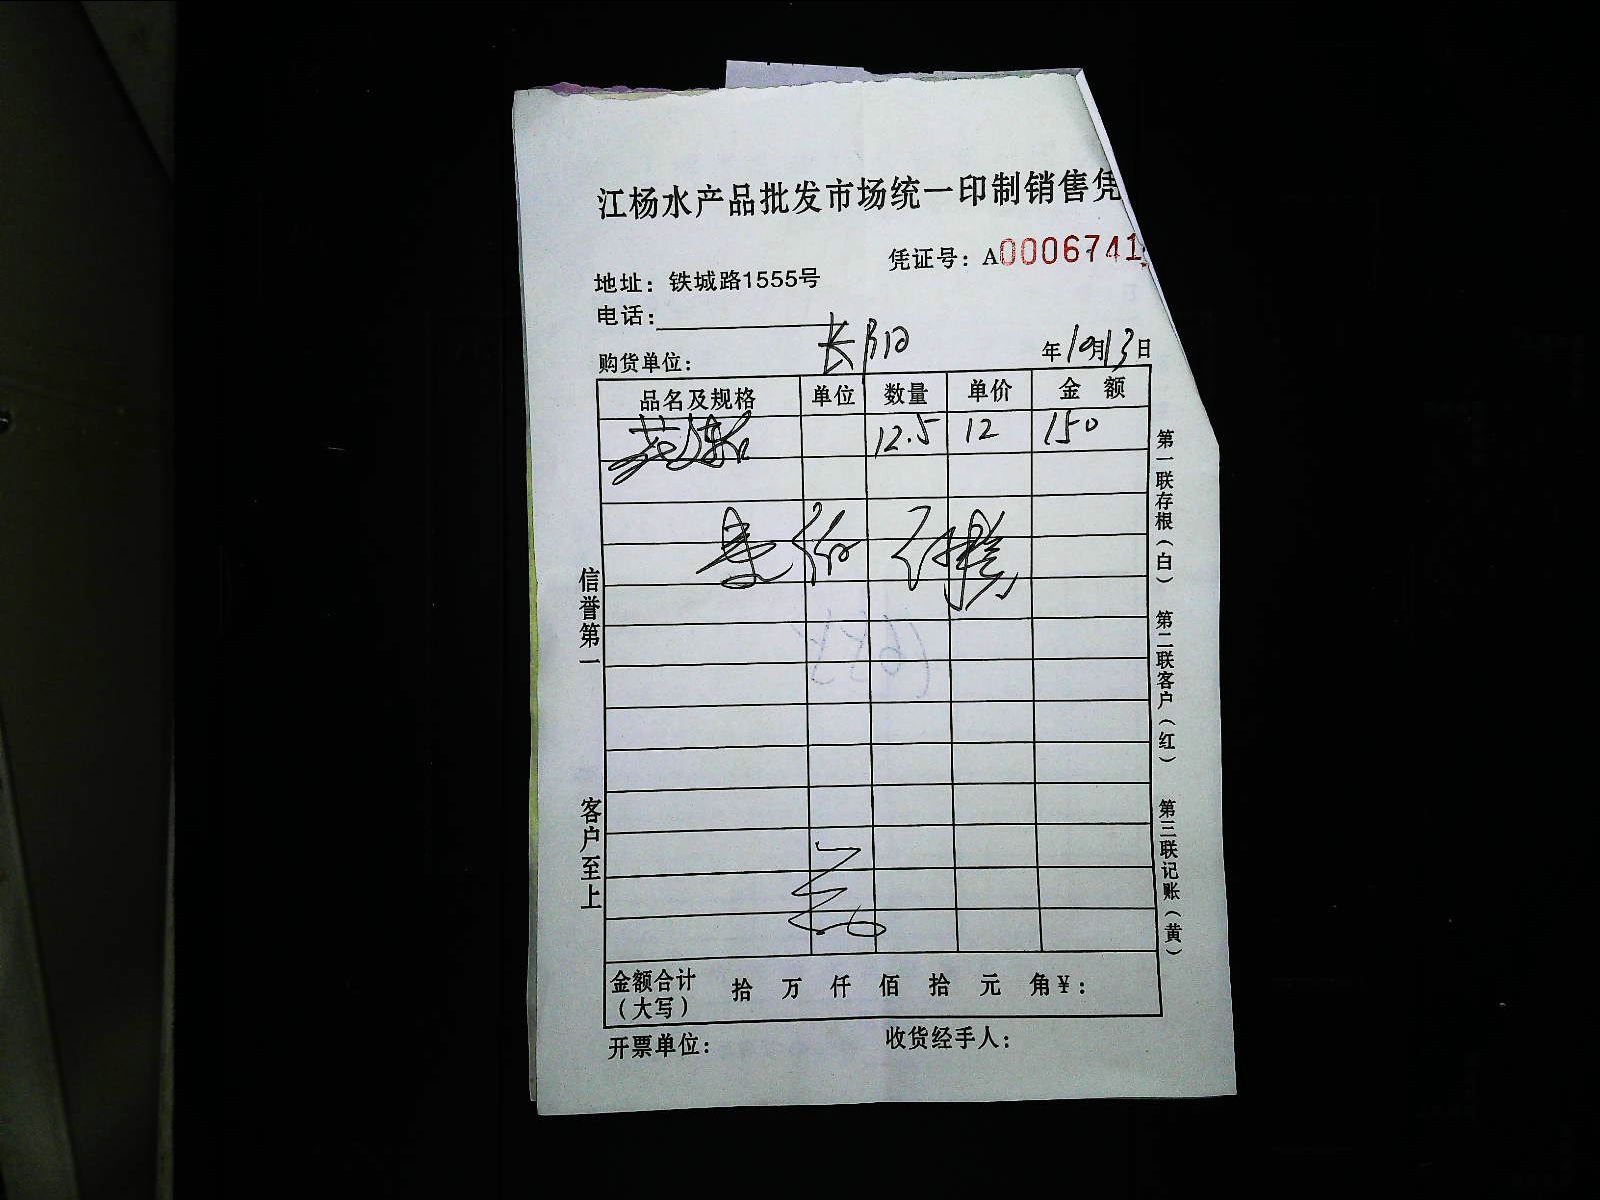 江杨水产品批发市场统一印制销售凭
凭证号：A0006741
地址：铁城路1555号
电话：
购货单位：长阳 年10月13日
品名及规格 单位 数量 单价 金额
12.5 12 150
信誉第一
客户至上
第一联存根（白）
第二联客户（红）
第三联记账（黄）
金额合计（大写） 拾 万 仟 佰 拾 元 角 ¥：
开票单位： 收货经手人：